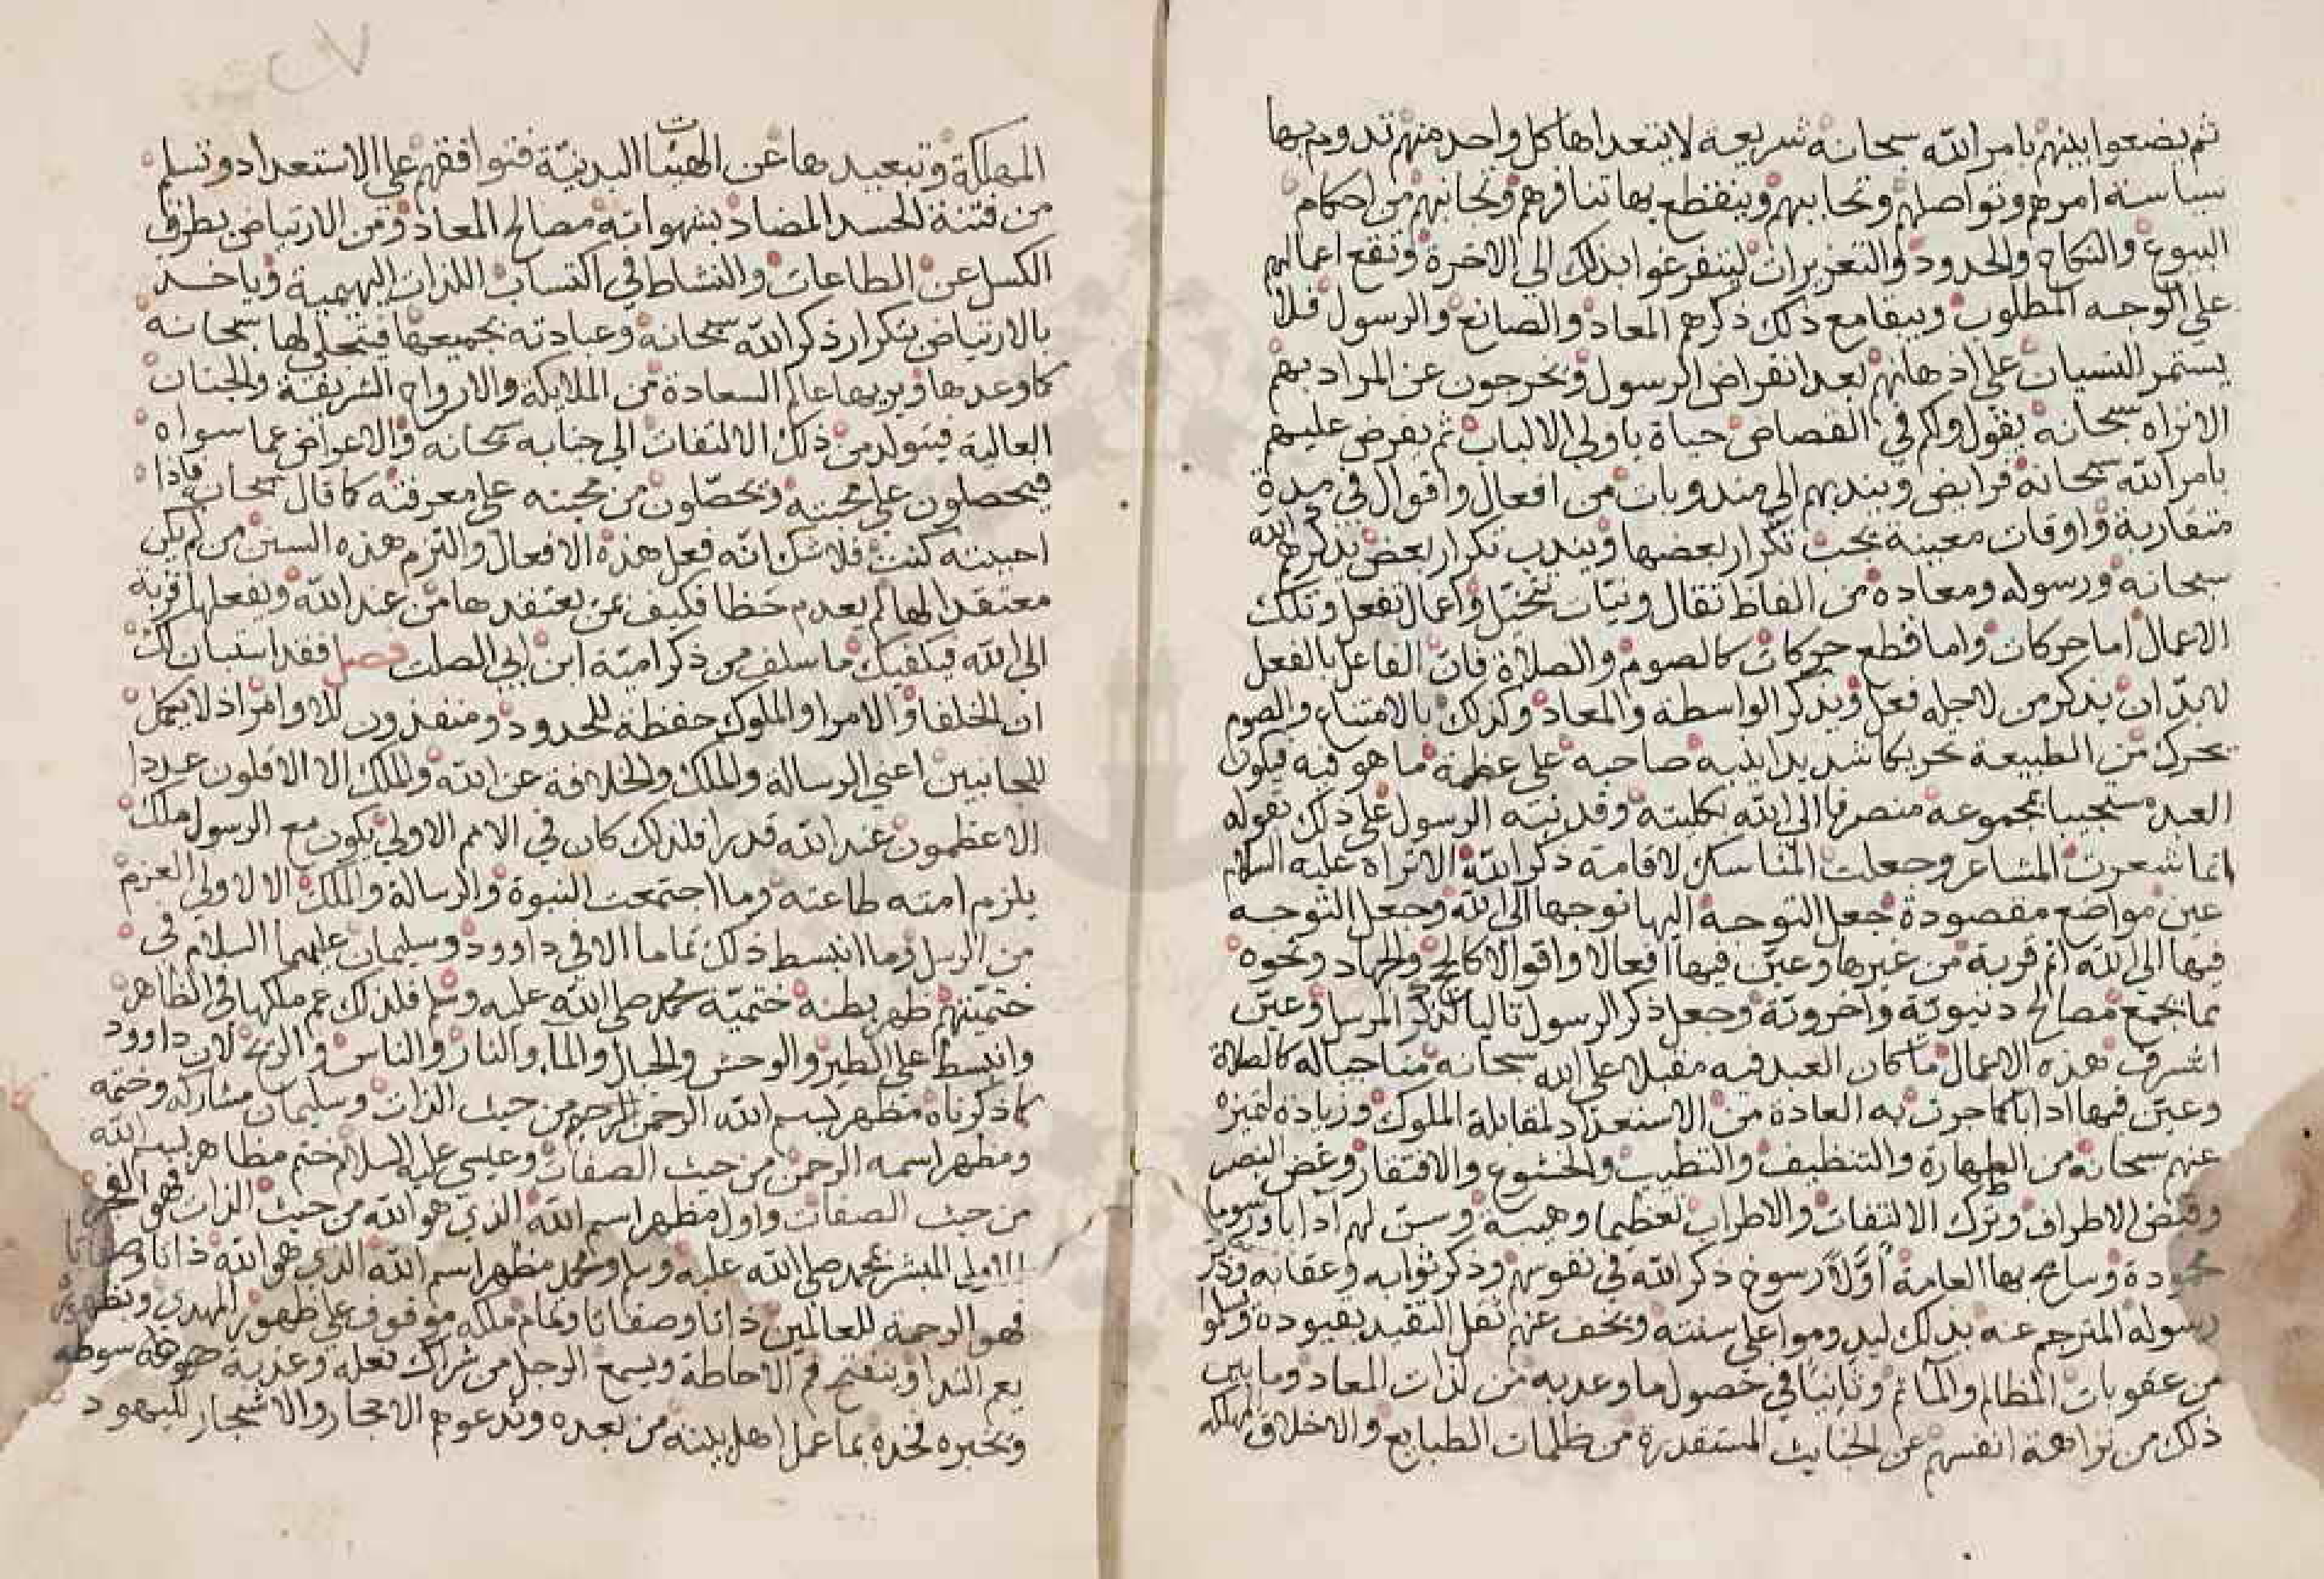 ثم يضعوا بينهم بامر الله سبحانه شريعة لا يتعداها كل واحد منهم تدوم بها
سياسة امرهم وتواصلهم وتحابهم وينقطع بها تنافرهم وتجانبهم من احكام
البيوع والنكاح والحدود والتعزيرات ليتفرغوا بذلك الى الاخرة وتقع اعمالهم
على الوجه المطلوب ويبقا مع ذلك ذكرهم المعاد والصانع والرسول فلا
يستمر النسيان على اذهانهم بعد انقراض الرسول ويخرجون عن المراد بهم
الا تراه سبحانه يقول ولكم في القصاص حياة ياولي الالباب ثم يفرض عليهم
بامر الله سبحانه فرايض ويندبهم الى مندوبات من افعال واقوال في مدة
متقاربة واوقات معينة يجب تكرار بعضها ويندب تكرار بعض يذكرهم الله
سبحانه ورسوله ومعاده من الفاظ تقال ونيات تتخيل واعمال تفعل وتلك
الاعمال اما حركات واما قطع حركات كالصوم والصلاة فان الفاعل بالفعل
لابد ان يذكر من لاجله فعل ويذكر الواسطه والمعاد وكذلك بالامتناع والصوم
يحرك من الطبيعة تحريكا شديدا ينبه صاحبه على عظمة ما هو فيه فيكون
العبد مستجيبا بمجموعه منصرفا الى الله بكليته وقد نبه الرسول على ذلك بقوله
انما شعرت المشاعر وجعلت المناسك لاقامة ذكر الله الا تراه عليه السلام
عين مواضع مقصودة جعل التوجه اليها توجها الى الله وجعل التوجه
فيها الى الله اتم قربة من غيرها وعين فيها افعالا واقوالا كالحج والجهاد ونحوه
مما يجمع مصالح دنيوية واخروية وجعل ذكر الرسول تاليا لذكر المرسل وعين
اشرف هذه الاعمال ما كان العبد فيه مقبلا على الله سبحانه مناجيا له كالصلاة
وعين فيها ادابا كما جرت به العادة من الاستعداد لمقابلة الملوك وزيادة لتميزه
عنهم سبحانه من الطهارة والتنظيف والتطيب والخشوع والافتقار وغض البصر
وقبض الاطراف وترك الالتفات والاطراب تعظيما وهيبة وسن لهم ادابا ورسوما
محمودة وسامح بها العامة اولا رسوخ ذكر الله في نفوسهم وذكر ثوابه وعقابه وذكر
رسوله المترجم عنه بذلك ليدوموا على سنته ويخف عنهم ثقل التقيد بقيوده ويسلموا
من عقوبات المظالم والمآثم وثانيا في حصول ما وعد به من لذات المعاد وما بين
ذلك من نزاهة انفسهم عن الخبايث المستقذرة من ظلمات الطبايع والاخلاق المهلكه
المهلكة وتبعيدها عن الهيئات البدنية فتوافقهم على الاستعداد وتسلم
من فتنة الجسد المضاد بشهواته مصالح المعاد ومن الارتياض بطرف
الكسل عن الطاعات والنشاط في اكتساب اللذات البهيمية وياخذ
بالارتياض بتكرار ذكر الله سبحانه وعبادته بجميعها فيتجلى لها سبحانه
كما وعدها ويريها عالم السعادة من الملايكة والارواح الشريفة والجنان
العالية فيتولد من ذلك الالتفات الى جنابه سبحانه والاعراض عما سواه
فيحصلون على محبته ويحصلون من محبته على معرفته كما قال سبحانه فاذا
احببته كنت فلا شك انه فعل هذه الافعال والتزم هذه السنن من لم يكن
معتقدا لها لم يعدم حظا فكيف من يعتقدها من عند الله ويفعلها قربة
الى الله فيكفيك ما سلف من ذكر امية ابن ابي الصلت فصل فقد استبان لك
ان الخلفا والامرا والملوك حفظة للحدود ومنفذون للاوامر اذ لا يكمل
للجانبين اعني الرسالة والملك والخلافة عن الله والملك الا الاقلون عددا
الاعظمون عند الله قدرا فلذلك كان في الامم الاولى يكون مع الرسول ملك
يلزم امته طاعته وما اجتمعت النبوة والرسالة والملك الا لاولي العزم
من الرسل وما انبسط ذلك تماما الا في داوود وسليمان عليهما السلام في
ختميتهم ظهر بطنه ختمية محمد صلى الله عليه وسلم فلذلك عم ملكها في الظاهر
وانبسط على الطير والوحش والجبال والمآء والنار والناس والريح لان داوود
كما ذكرناه مظهر لبسم الله الرحمن الرحيم من حيث الذات وسليمان مشاركه وختمه
ومظهر اسمه الرحمن من حيث الصفات وعيسى عليه السلام ختم مظاهر بسم الله
من حيث الصفات واول مظهر اسم الله الذي هو الله من حيث الذات فهو
المبشر بمحمد صلى الله عليه وسلم ومحمد مظهر اسم الله الذي هو الله ذاتا
فهو الرحمة للعالمين ذاتا وصفاتا وتمام ملكه موقوف على ظهور المهدي
يعم الندا وينفتح فم الاحاطة ويسمع الرجل من شراك نعله وعذبة سوطه
وتخبره فخذه بما عمل اهل بيته من بعده وتدعوهم الاحجار والاشجار لليهود